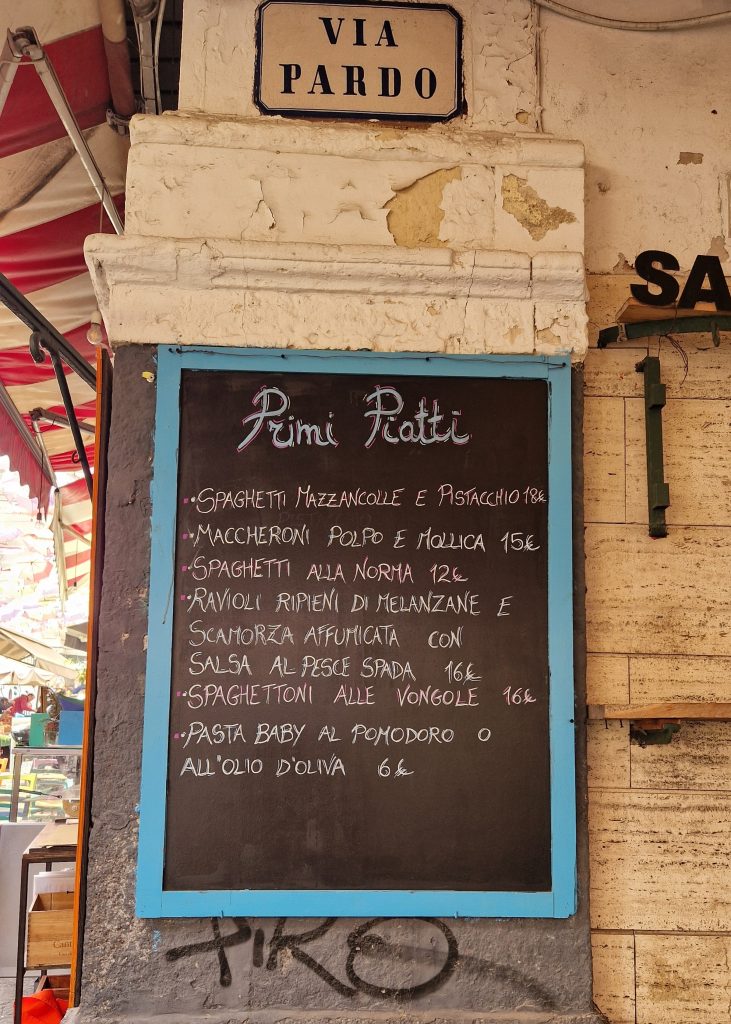 VIA
PARDO
SA
Primi Piatti
• SPAGHETTI MAZZANCOLLE E PISTACCHIO 18€
• MACCHERONI POLPO E MOLLICA 15€
• SPAGHETTI ALLA NORMA 12€
• RAVIOLI RIPIENI DI MELANZANE E
SCAMORZA AFFUMICATA CON
SALSA AL PESCE SPADA 16€
• SPAGHETTONI ALLE VONGOLE 16€
• PASTA BABY AL POMODORO O
ALL'OLIO D'OLIVA 6€
PIRO